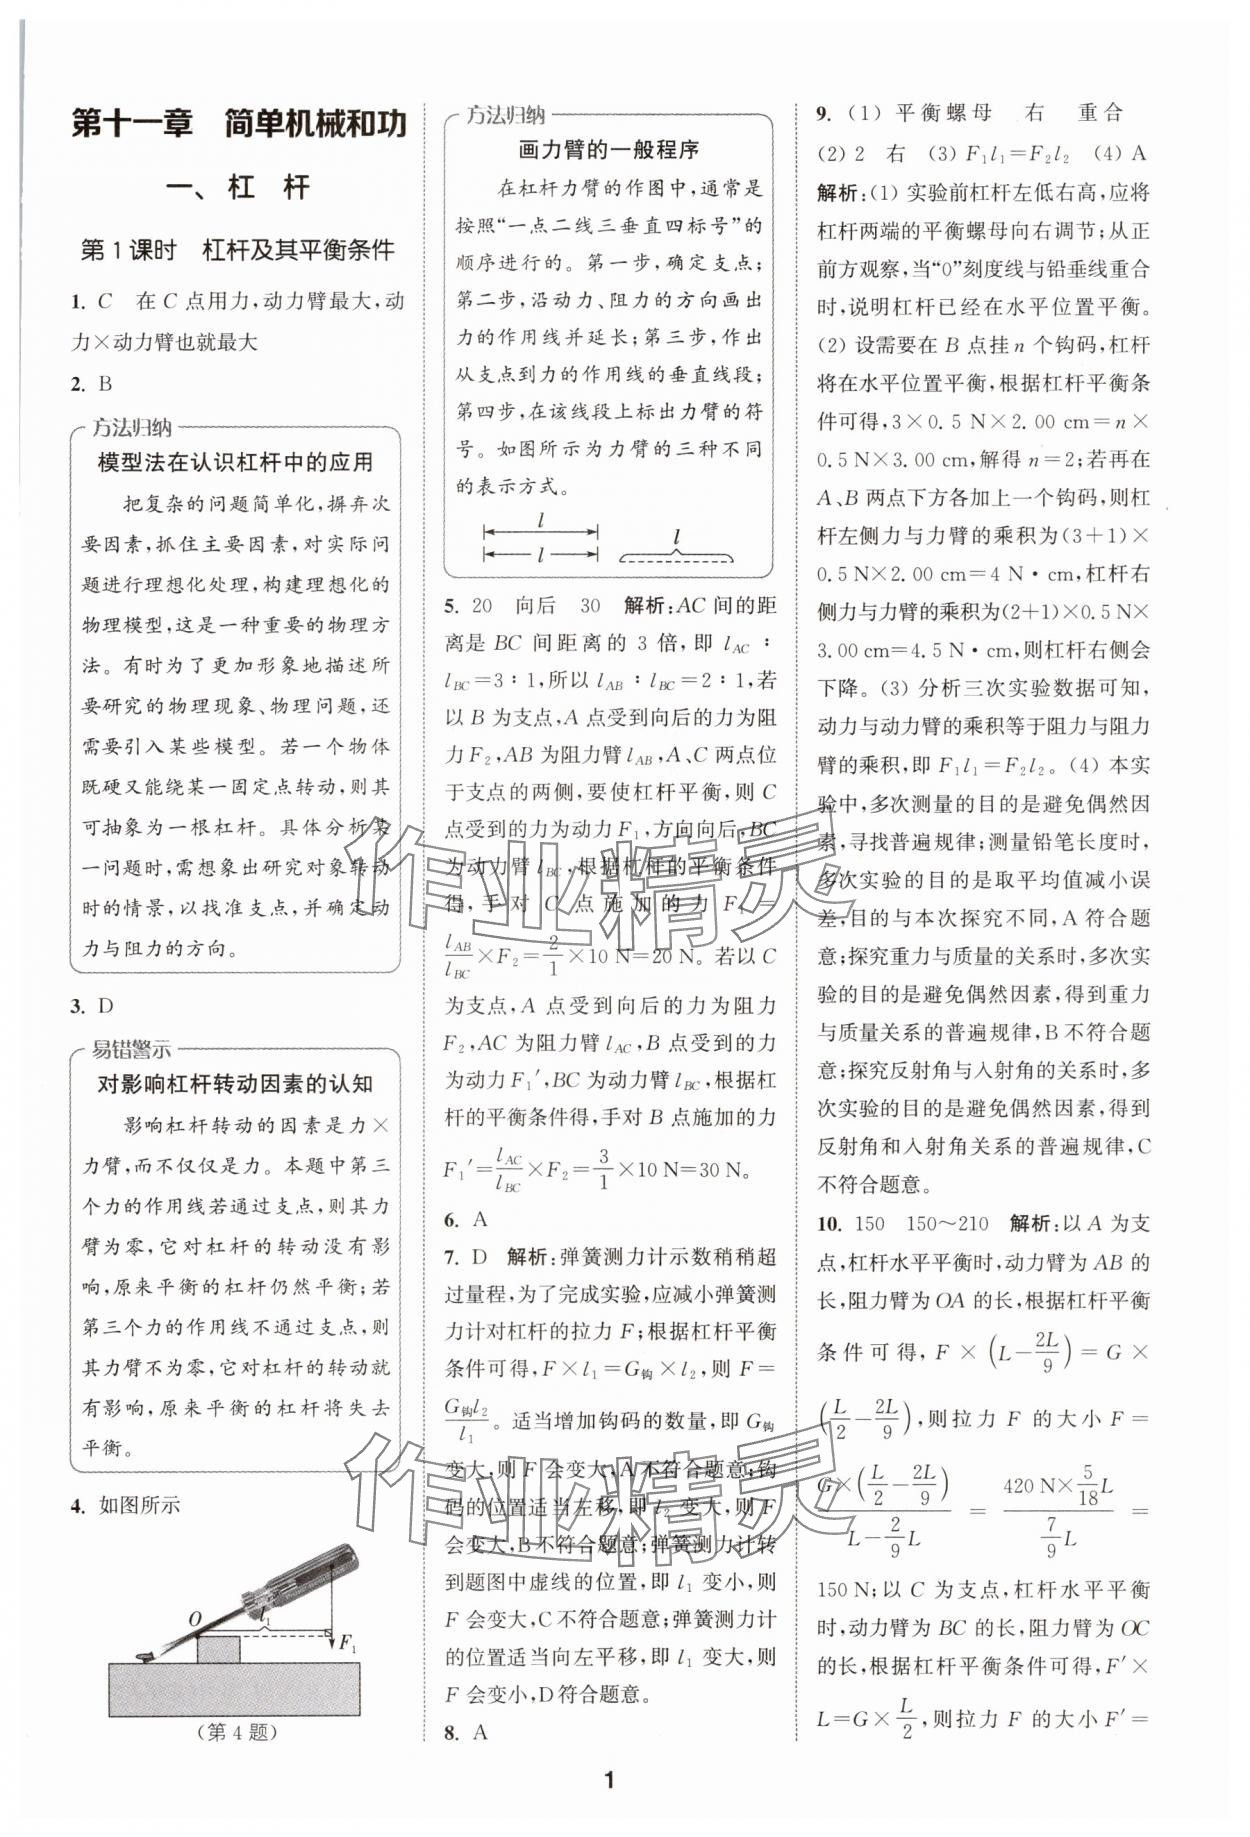 第十一章 简单机械和功
一、杠 杆
第1课时 杠杆及其平衡条件
1. C 在C点用力,动力臂最大,动
力×动力臂也就最大
2. B
方法归纳
模型法在认识杠杆中的应用
把复杂的问题简单化,摒弃次
要因素,抓住主要因素,对实际问
题进行理想化处理,构建理想化的
物理模型,这是一种重要的物理方
法。有时为了更加形象地描述所
要研究的物理现象、物理问题,还
需要引入某些模型。若一个物体
既硬又能绕某一固定点转动,则其
可抽象为一根杠杆。具体分析某
一问题时,需想象出研究对象转动
时的情景,以找准支点,并确定动
力与阻力的方向。
3. D
易错警示
对影响杠杆转动因素的认知
影响杠杆转动的因素是力×
力臂,而不仅仅是力。本题中第三
个力的作用线若通过支点,则其力
臂为零,它对杠杆的转动没有影
响,原来平衡的杠杆仍然平衡;若
第三个力的作用线不通过支点,则
其力臂不为零,它对杠杆的转动就
有影响,原来平衡的杠杆将失去
平衡。
4. 如图所示
O l₁ F₁
(第4题)
方法归纳
画力臂的一般程序
在杠杆力臂的作图中,通常是
按照“一点二线三垂直四标号”的
顺序进行的。第一步,确定支点;
第二步,沿动力、阻力的方向画出
力的作用线并延长;第三步,作出
从支点到力的作用线的垂直线段;
第四步,在该线段上标出力臂的符
号。如图所示为力臂的三种不同
的表示方式。
l
l l
5. 20 向后 30 解析:AC间的距
离是BC间距离的3倍,即l_AC∶
l_BC=3∶1,所以l_AB∶l_BC=2∶1,若
以B为支点,A点受到向后的力为阻
力F₂,AB为阻力臂l_AB,A、C两点位
于支点的两侧,要使杠杆平衡,则C
点受到的力为动力F₁,方向向后,BC
为动力臂l_BC,根据杠杆的平衡条件
得,手对C点施加的力F₁=
l_AB/l_BC×F₂=2/1×10 N=20 N。若以C
为支点,A点受到向后的力为阻力
F₂,AC为阻力臂l_AC,B点受到的力
为动力F₁′,BC为动力臂l_BC,根据杠
杆的平衡条件得,手对B点施加的力
F₁′=l_AC/l_BC×F₂=3/1×10 N=30 N。
6. A
7. D 解析:弹簧测力计示数稍稍超
过量程,为了完成实验,应减小弹簧测
力计对杠杆的拉力F;根据杠杆平衡
条件可得,F×l₁=G钩×l₂,则F=
G钩l₂/l₁。适当增加钩码的数量,即G钩
变大,则F会变大,A不符合题意;钩
码的位置适当左移,即l₂变大,则F
会变大,B不符合题意;弹簧测力计转
到题图中虚线的位置,即l₁变小,则
F会变大,C不符合题意;弹簧测力计
的位置适当向左平移,即l₁变大,则
F会变小,D符合题意。
8. A
9. (1) 平衡螺母 右 重合
(2) 2 右 (3) F₁l₁=F₂l₂ (4) A
解析:(1) 实验前杠杆左低右高,应将
杠杆两端的平衡螺母向右调节;从正
前方观察,当“0”刻度线与铅垂线重合
时,说明杠杆已经在水平位置平衡。
(2) 设需要在B点挂n个钩码,杠杆
将在水平位置平衡,根据杠杆平衡条
件可得,3×0.5 N×2.00 cm=n×
0.5 N×3.00 cm,解得n=2;若再在
A、B两点下方各加上一个钩码,则杠
杆左侧力与力臂的乘积为(3+1)×
0.5 N×2.00 cm=4 N·cm,杠杆右
侧力与力臂的乘积为(2+1)×0.5 N×
3.00 cm=4.5 N·cm,则杠杆右侧会
下降。(3) 分析三次实验数据可知,
动力与动力臂的乘积等于阻力与阻力
臂的乘积,即F₁l₁=F₂l₂。(4) 本实
验中,多次测量的目的是避免偶然因
素,寻找普遍规律;测量铅笔长度时,
多次实验的目的是取平均值减小误
差,目的与本次探究不同,A符合题
意;探究重力与质量的关系时,多次实
验的目的是避免偶然因素,得到重力
与质量关系的普遍规律,B不符合题
意;探究反射角与入射角的关系时,多
次实验的目的是避免偶然因素,得到
反射角和入射角关系的普遍规律,C
不符合题意。
10. 150 150～210 解析:以A为支
点,杠杆水平平衡时,动力臂为AB的
长,阻力臂为OA的长,根据杠杆平衡
条件可得,F×(L-2L/9)=G×
(L/2-2L/9),则拉力F的大小F=
G×(L/2-2L/9)/(L-2/9L)=(420 N×5/18L)/(7/9L)=
150 N;以C为支点,杠杆水平平衡
时,动力臂为BC的长,阻力臂为OC
的长,根据杠杆平衡条件可得,F′×
L=G×L/2,则拉力F的大小F′=
1
作业精灵
作业精灵